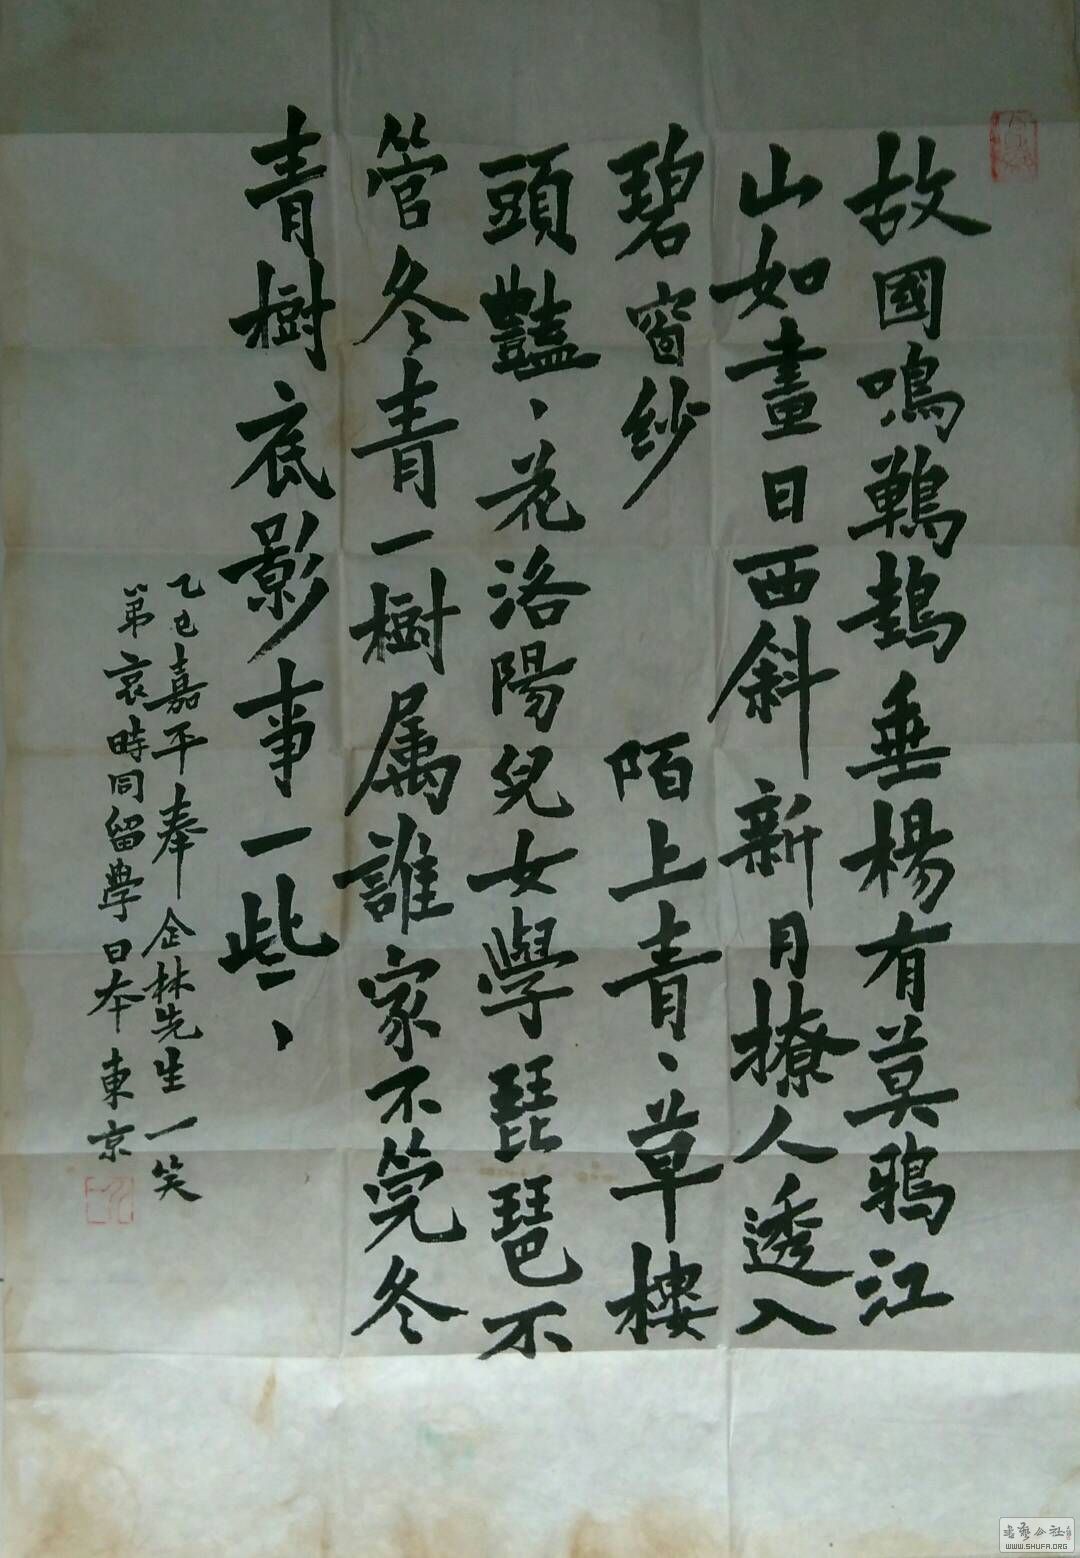 故國鳴鵜鵊垂楊有莫鴉江
山如畫日西斜新月撩人透入
碧窗紗 陌上青、草樓
頭豔、花洛陽兒女學琵琶不
管冬青一樹属誰家不管冬
青樹底影事一些、
乙巳嘉平奉企林先生一笑
弟哀時同留學日本東京
書藝公社
WWW.SHUFA.ORG